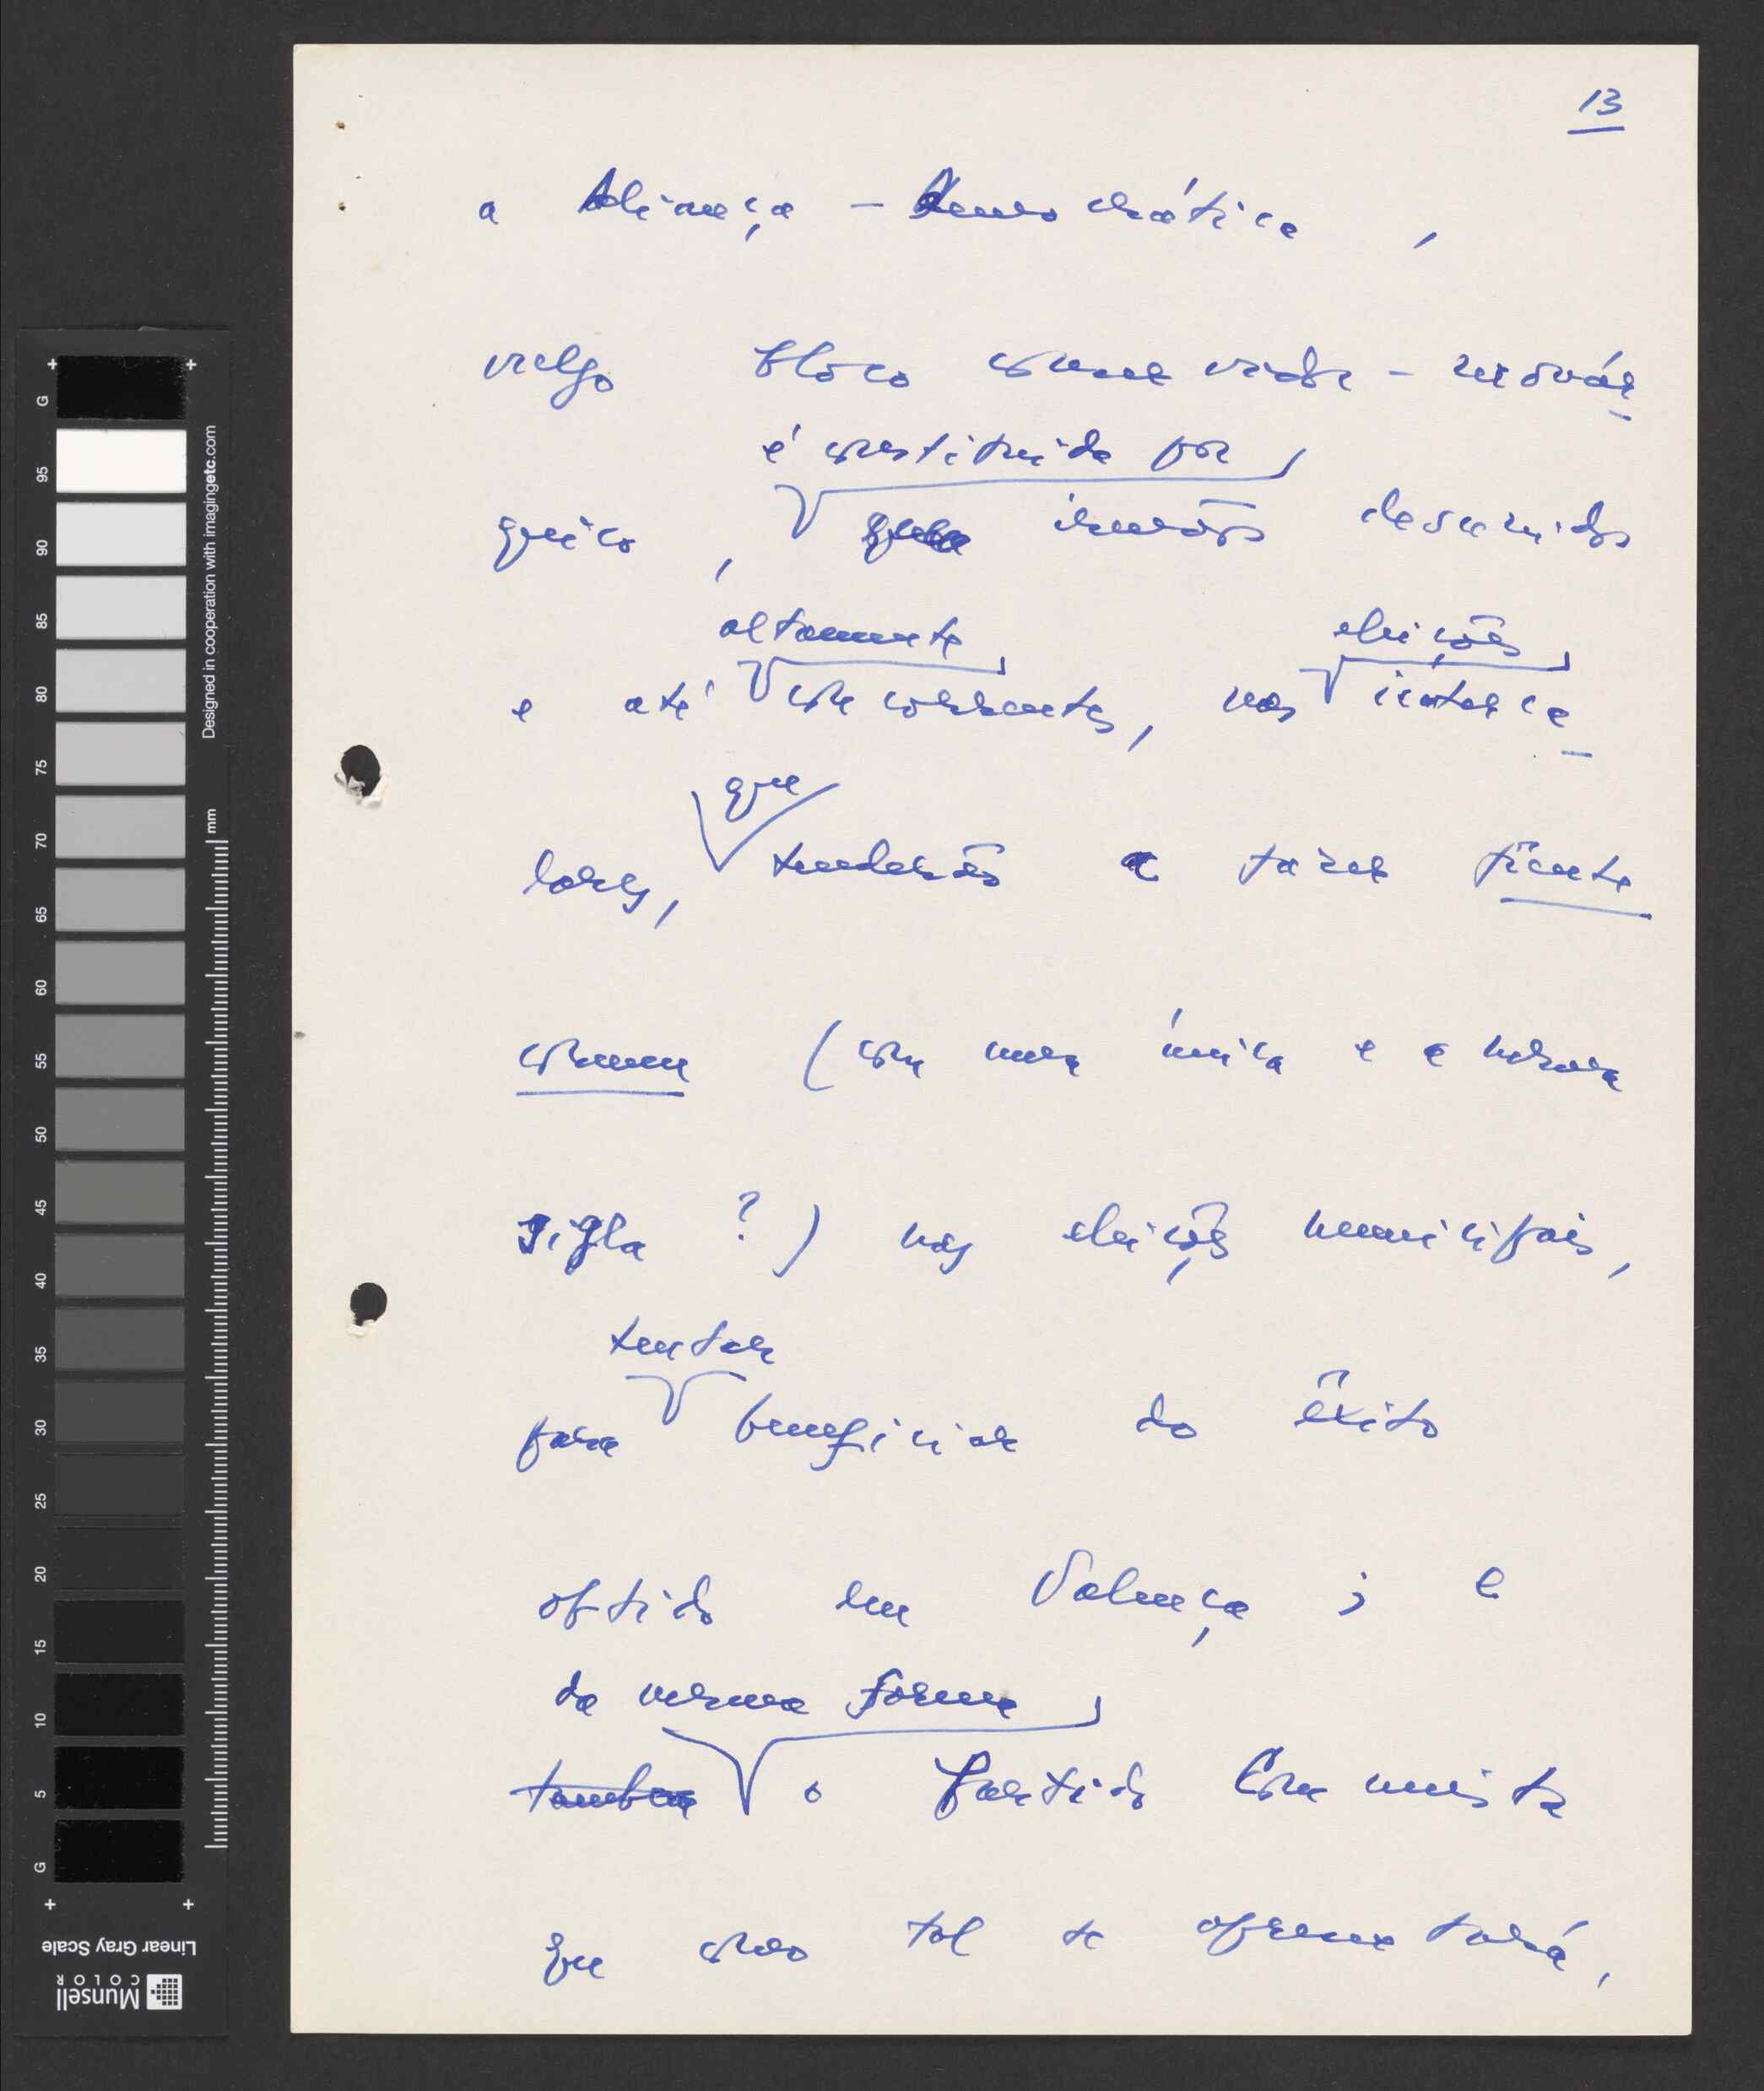 13
a Aliança - Democrática,
vulgo bloco conservador - monár-
é constituida por
quico, que irmãos desunidos
altamente eleições
e até concorrentes, nas interca-
que
lares, tenderão a fazer frente
comum (com uma única e a mesma
sigla ?) nas eleições municipais,
tentar
para beneficiar do êxito
obtido em Valença ; e
da mesma forma
tambem o Partido Comunista
que como tal se apresentará,
Designed in cooperation with imagingetc.com
mm
G 95 90 85 80 75 70 65 60 55 50 45 40 35 30 25 20 15 10 5 G
Linear Gray Scale
Munsell
COLOR